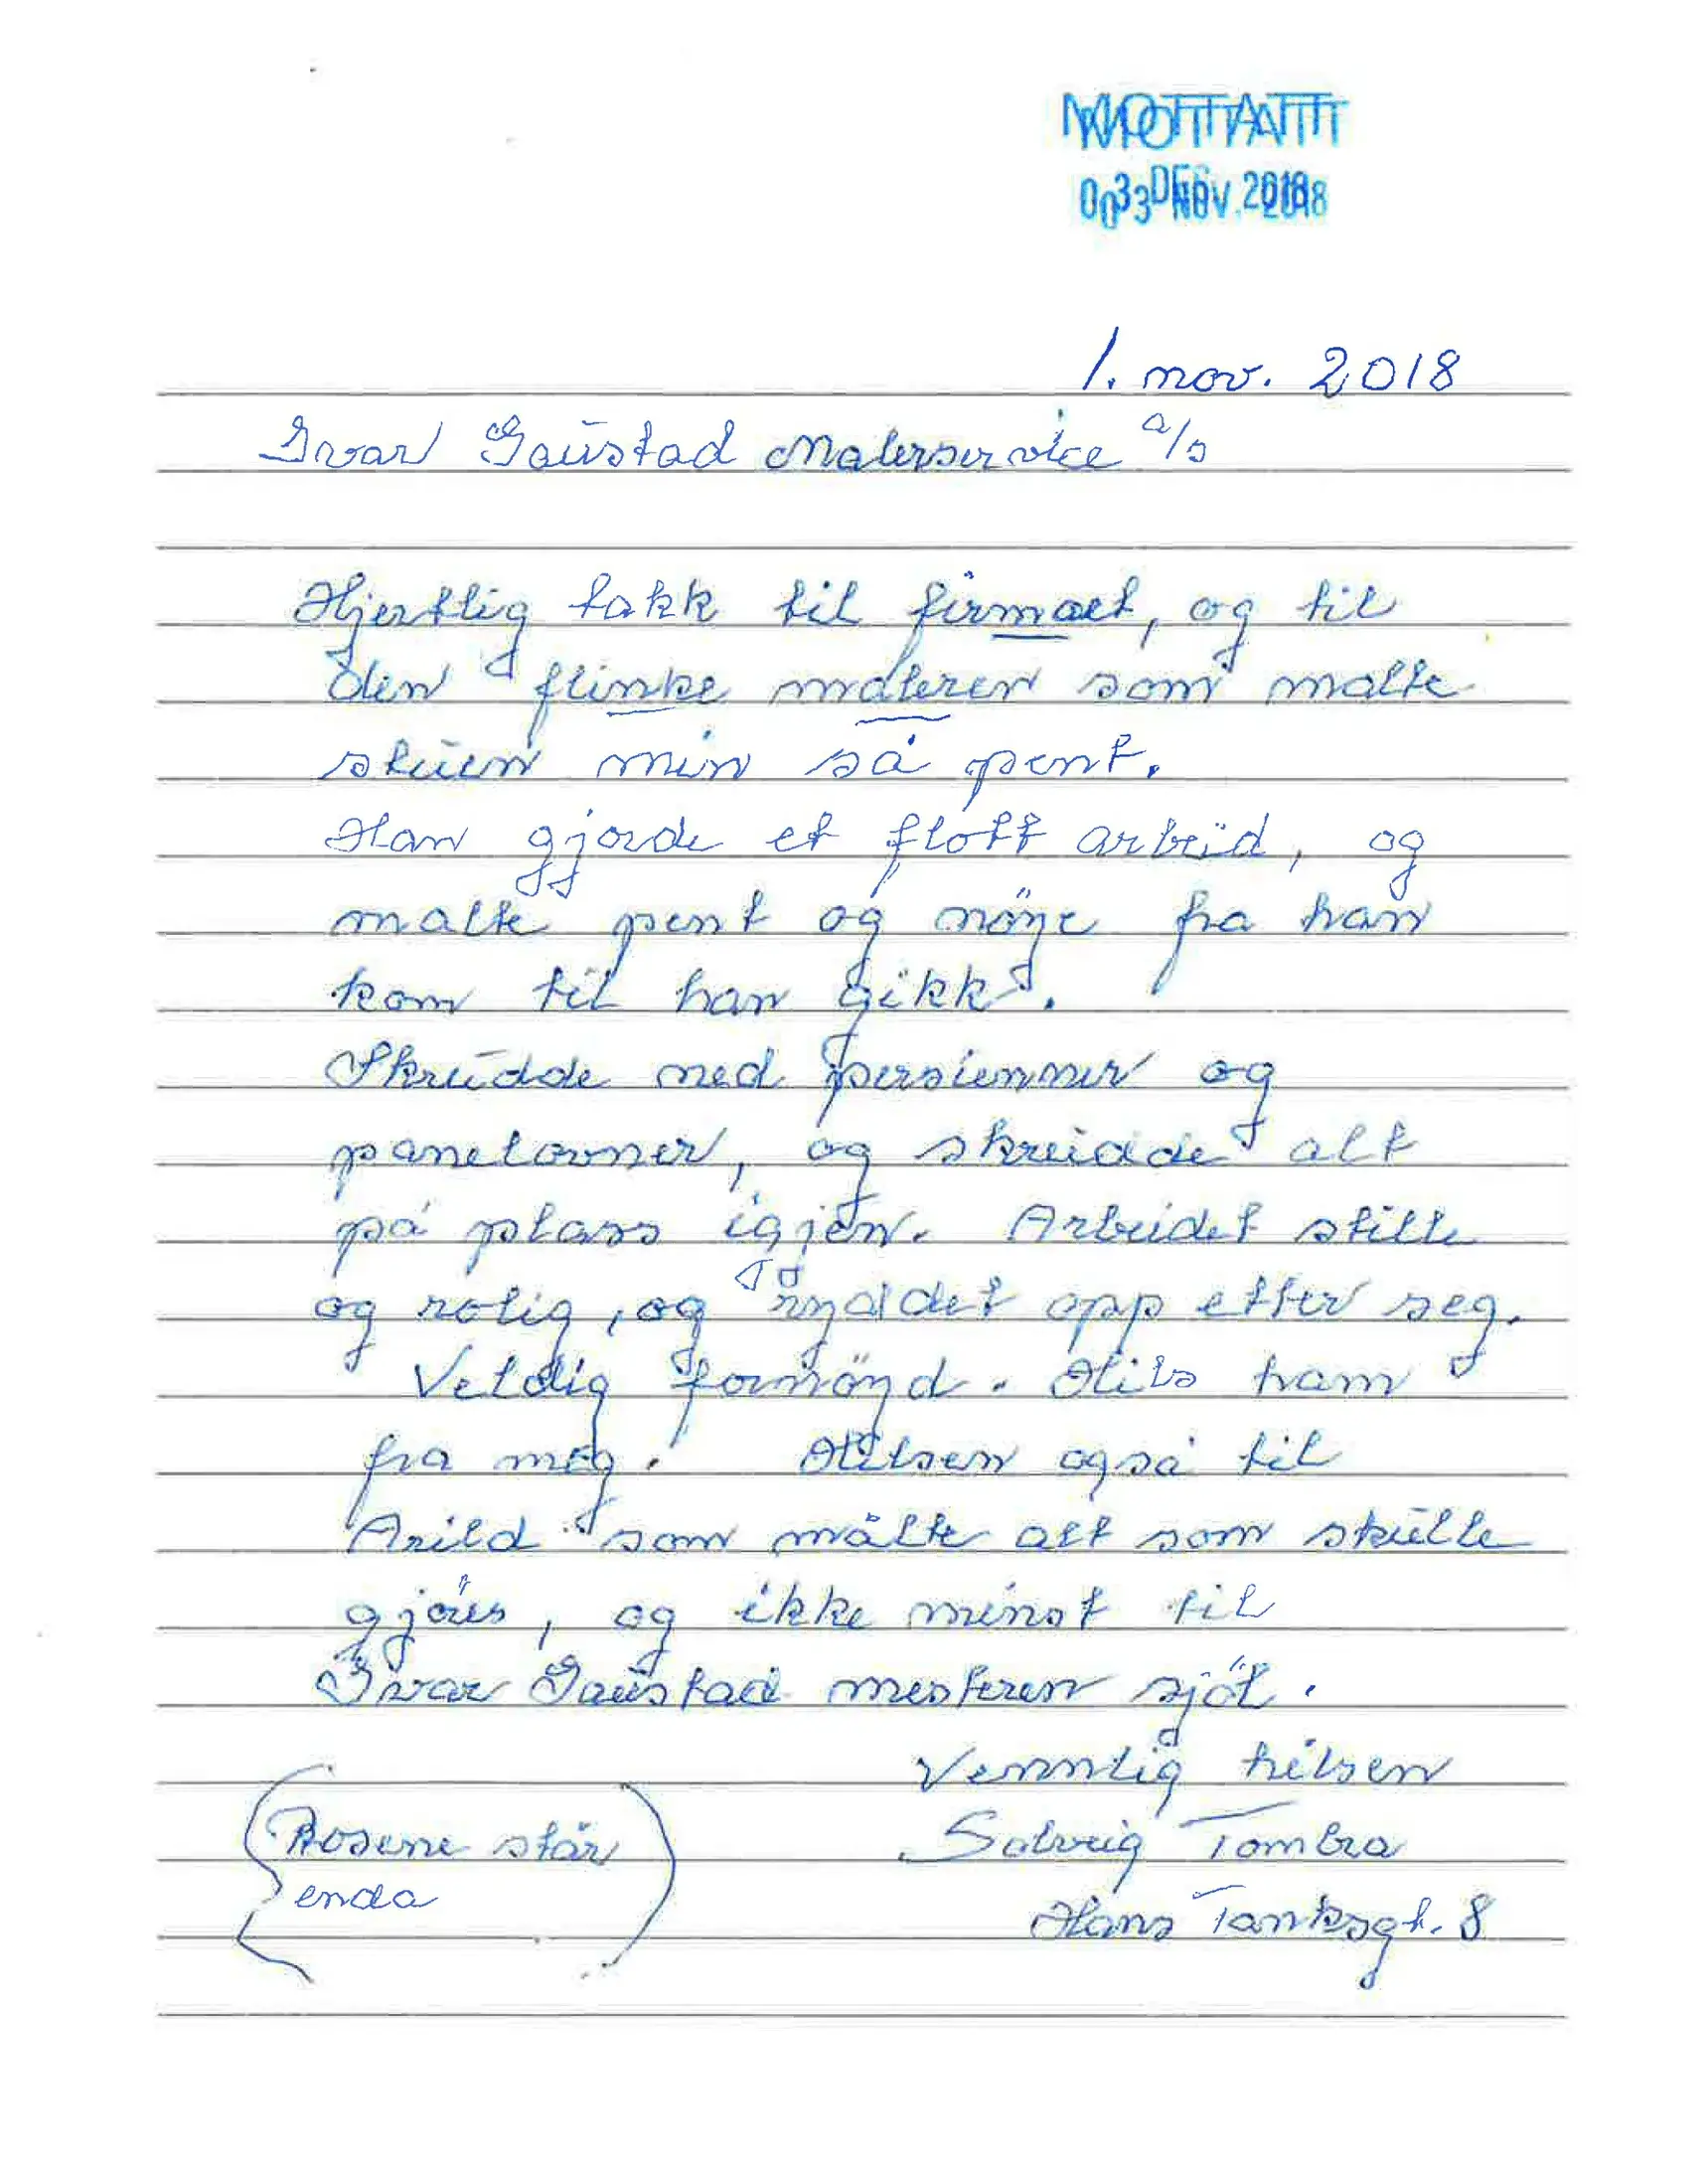 MOTTATT
1. nov. 2018
Ivar Gaustad Malerservice a/s
Hjertlig takk til firmaet, og til
den flinke maleren som malte
stuen min så pent.
Han gjorde et flott arbeid, og
malte pent og nöye fra han
kom til han gikk.
Skrudde ned persienner og
panelovner, og skrudde alt
på plass igjen. Arbeidet stille
og rolig, og ryddet opp etter seg.
Veldig fornöyd. Hils ham
fra meg. Hilsen også til
Arild som målte alt som skulle
gjöres, og ikke minst til
Ivar Gaustad mesteren sjöl.
Vennlig hilsen
Solveig Tombra
Hans Tanksgt. 8
(Rosene står
enda)